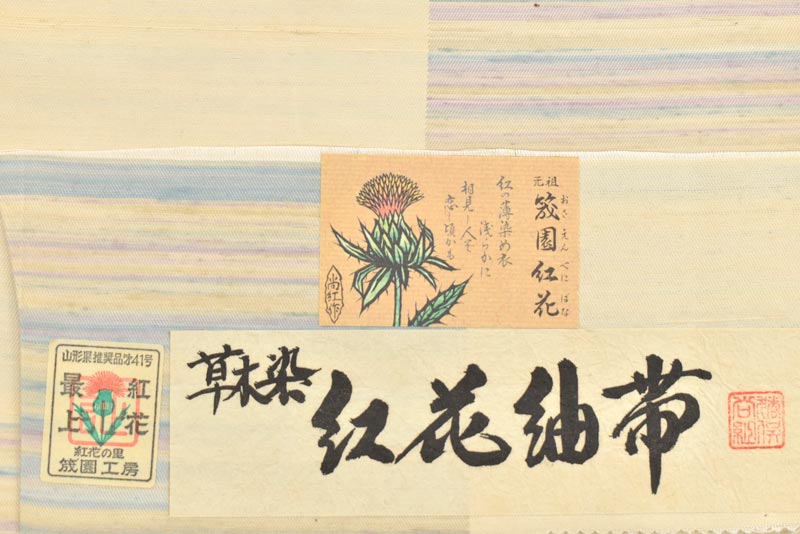 元祖
筬園紅花
おさえんべにばな
紅の薄染め衣
浅らかに
相見し人に
恋ふ頃かも
尚紅作
山形県推奨品
41号
最上
紅花
紅花の里
筬園工房
草木染
紅花紬帯